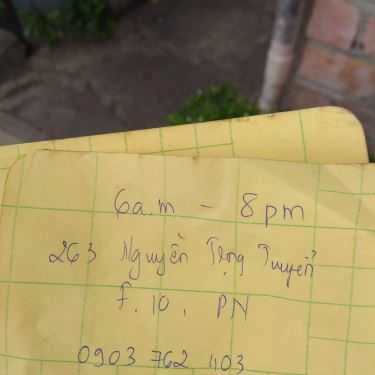 6a.m - 8pm
263 Nguyễn Trọng Tuyển
f. 10, PN
0903 762 103